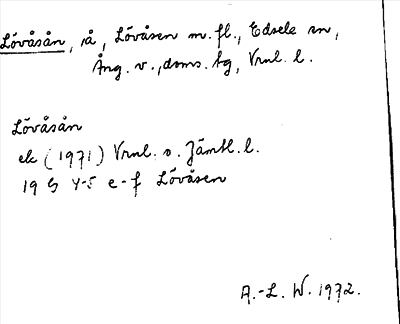 Lövåsån, å, Lövåsen m. fl., Edsele sn,
Ång. v., doms. bg, Vrnl. l.
Lövåsån
ek (1971) Vrnl. o. Jämtl. l.
19 G 4-5 e-f Lövåsen
A.-L. W. 1972.